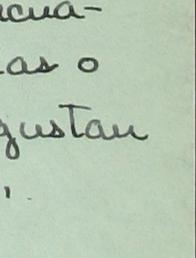 ncua-
as o
gustan
,